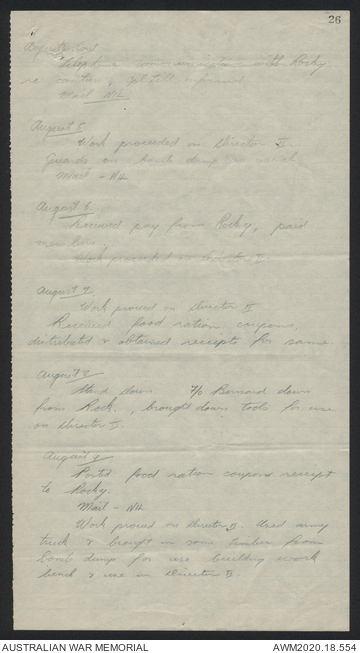 26
August 4
Telephone communication with Rocky
re
Mail - Nil
August 5
Work proceeded on Director II
Guards on bomb dump as usual
Mail - Nil
August 6
Received pay from Rocky, paid
members.
Work proceeded on Director II.
August 7
Work proceed on Director II
Received food ration coupons,
distributed & obtained receipts for same.
August 8
Stand down. F/O Barnard down
from Rock., brought down tools for use
on Director II.
August 9
Posted food ration coupons receipt
to Rocky.
Mail - Nil
Work proceed on Director II. Used army
truck & brought in some timber from
bomb dump for use building work
bench & use in Director II.
AUSTRALIAN WAR MEMORIAL
AWM2020.18.554